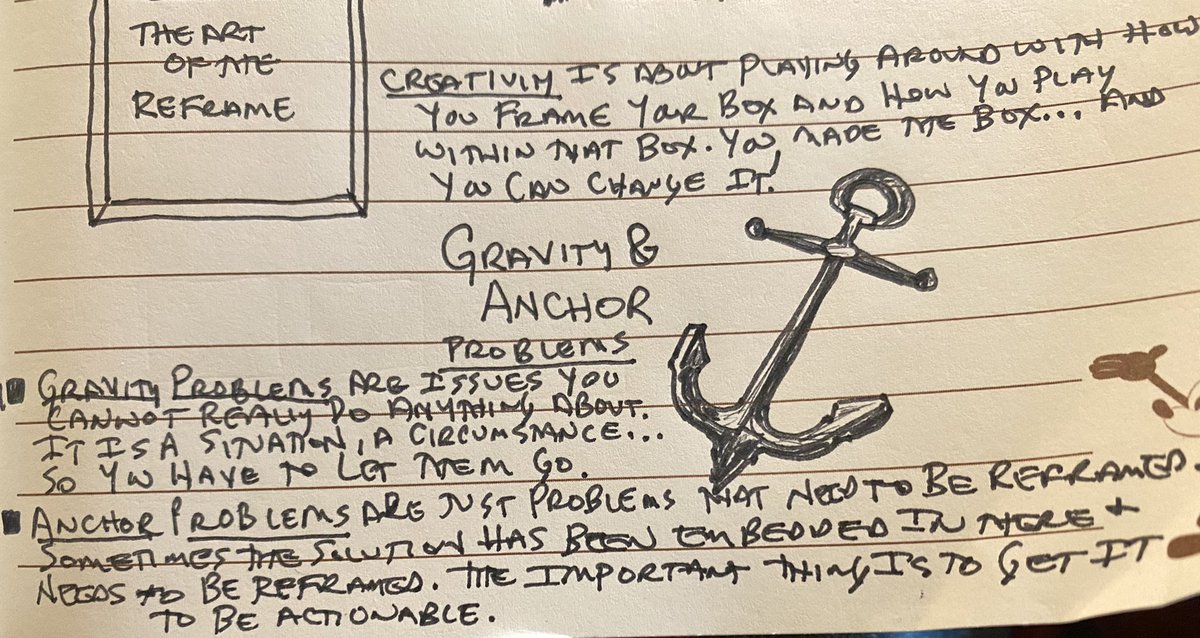 THE ART
OF THE
REFRAME
CREATIVITY IS ABOUT PLAYING AROUND WITH HOW
YOU FRAME YOUR BOX AND HOW YOU PLAY
WITHIN THAT BOX. YOU MADE THE BOX... AND
YOU CAN CHANGE IT!
GRAVITY &
ANCHOR
PROBLEMS
GRAVITY PROBLEMS ARE ISSUES YOU
CANNOT REALLY DO ANYTHING ABOUT.
IT IS A SITUATION, A CIRCUMSTANCE...
SO YOU HAVE TO LET THEM GO.
ANCHOR PROBLEMS ARE JUST PROBLEMS THAT NEED TO BE REFRAMED.
SOMETIMES THE SOLUTION HAS BEEN EMBEDDED IN THERE +
NEEDS TO BE REFRAMED. THE IMPORTANT THING IS TO GET IT
TO BE ACTIONABLE.